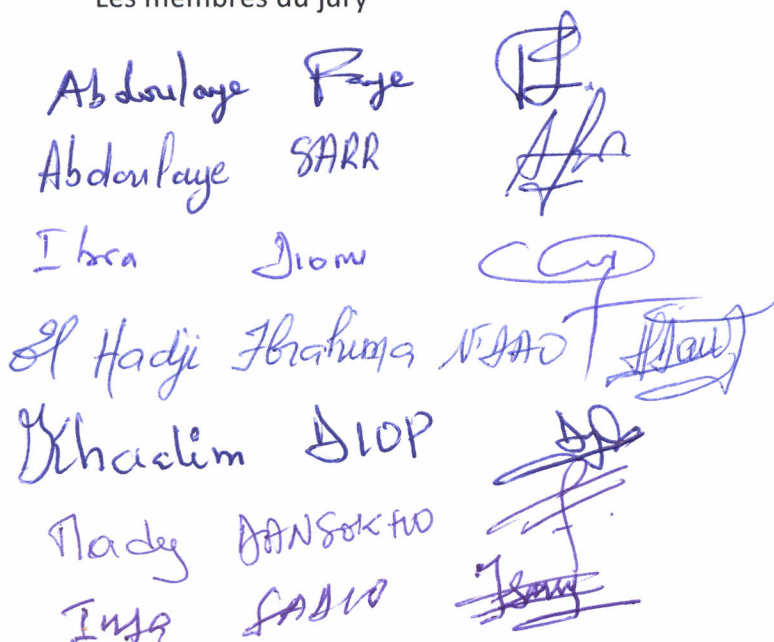 Les membres du jury
Abdoulaye Faye
Abdoulaye SARR
Ibra Diom
El Hadji Ibrahima NDAO
Khadim DIOP
Mady DANSOKHO
Insa SADIO